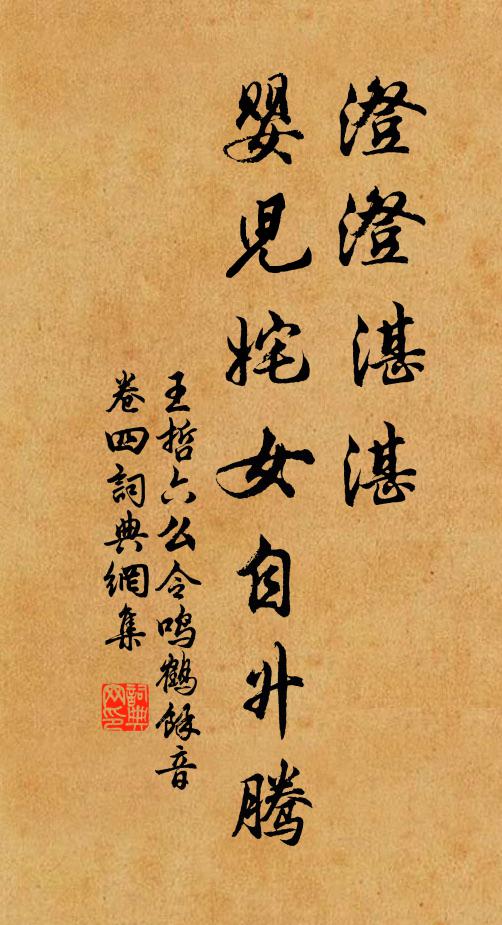 澄澄湛湛
嬰兒姹女自升騰
王哲六么令鳴鶴餘音
卷四詞典網集
詞典
网印